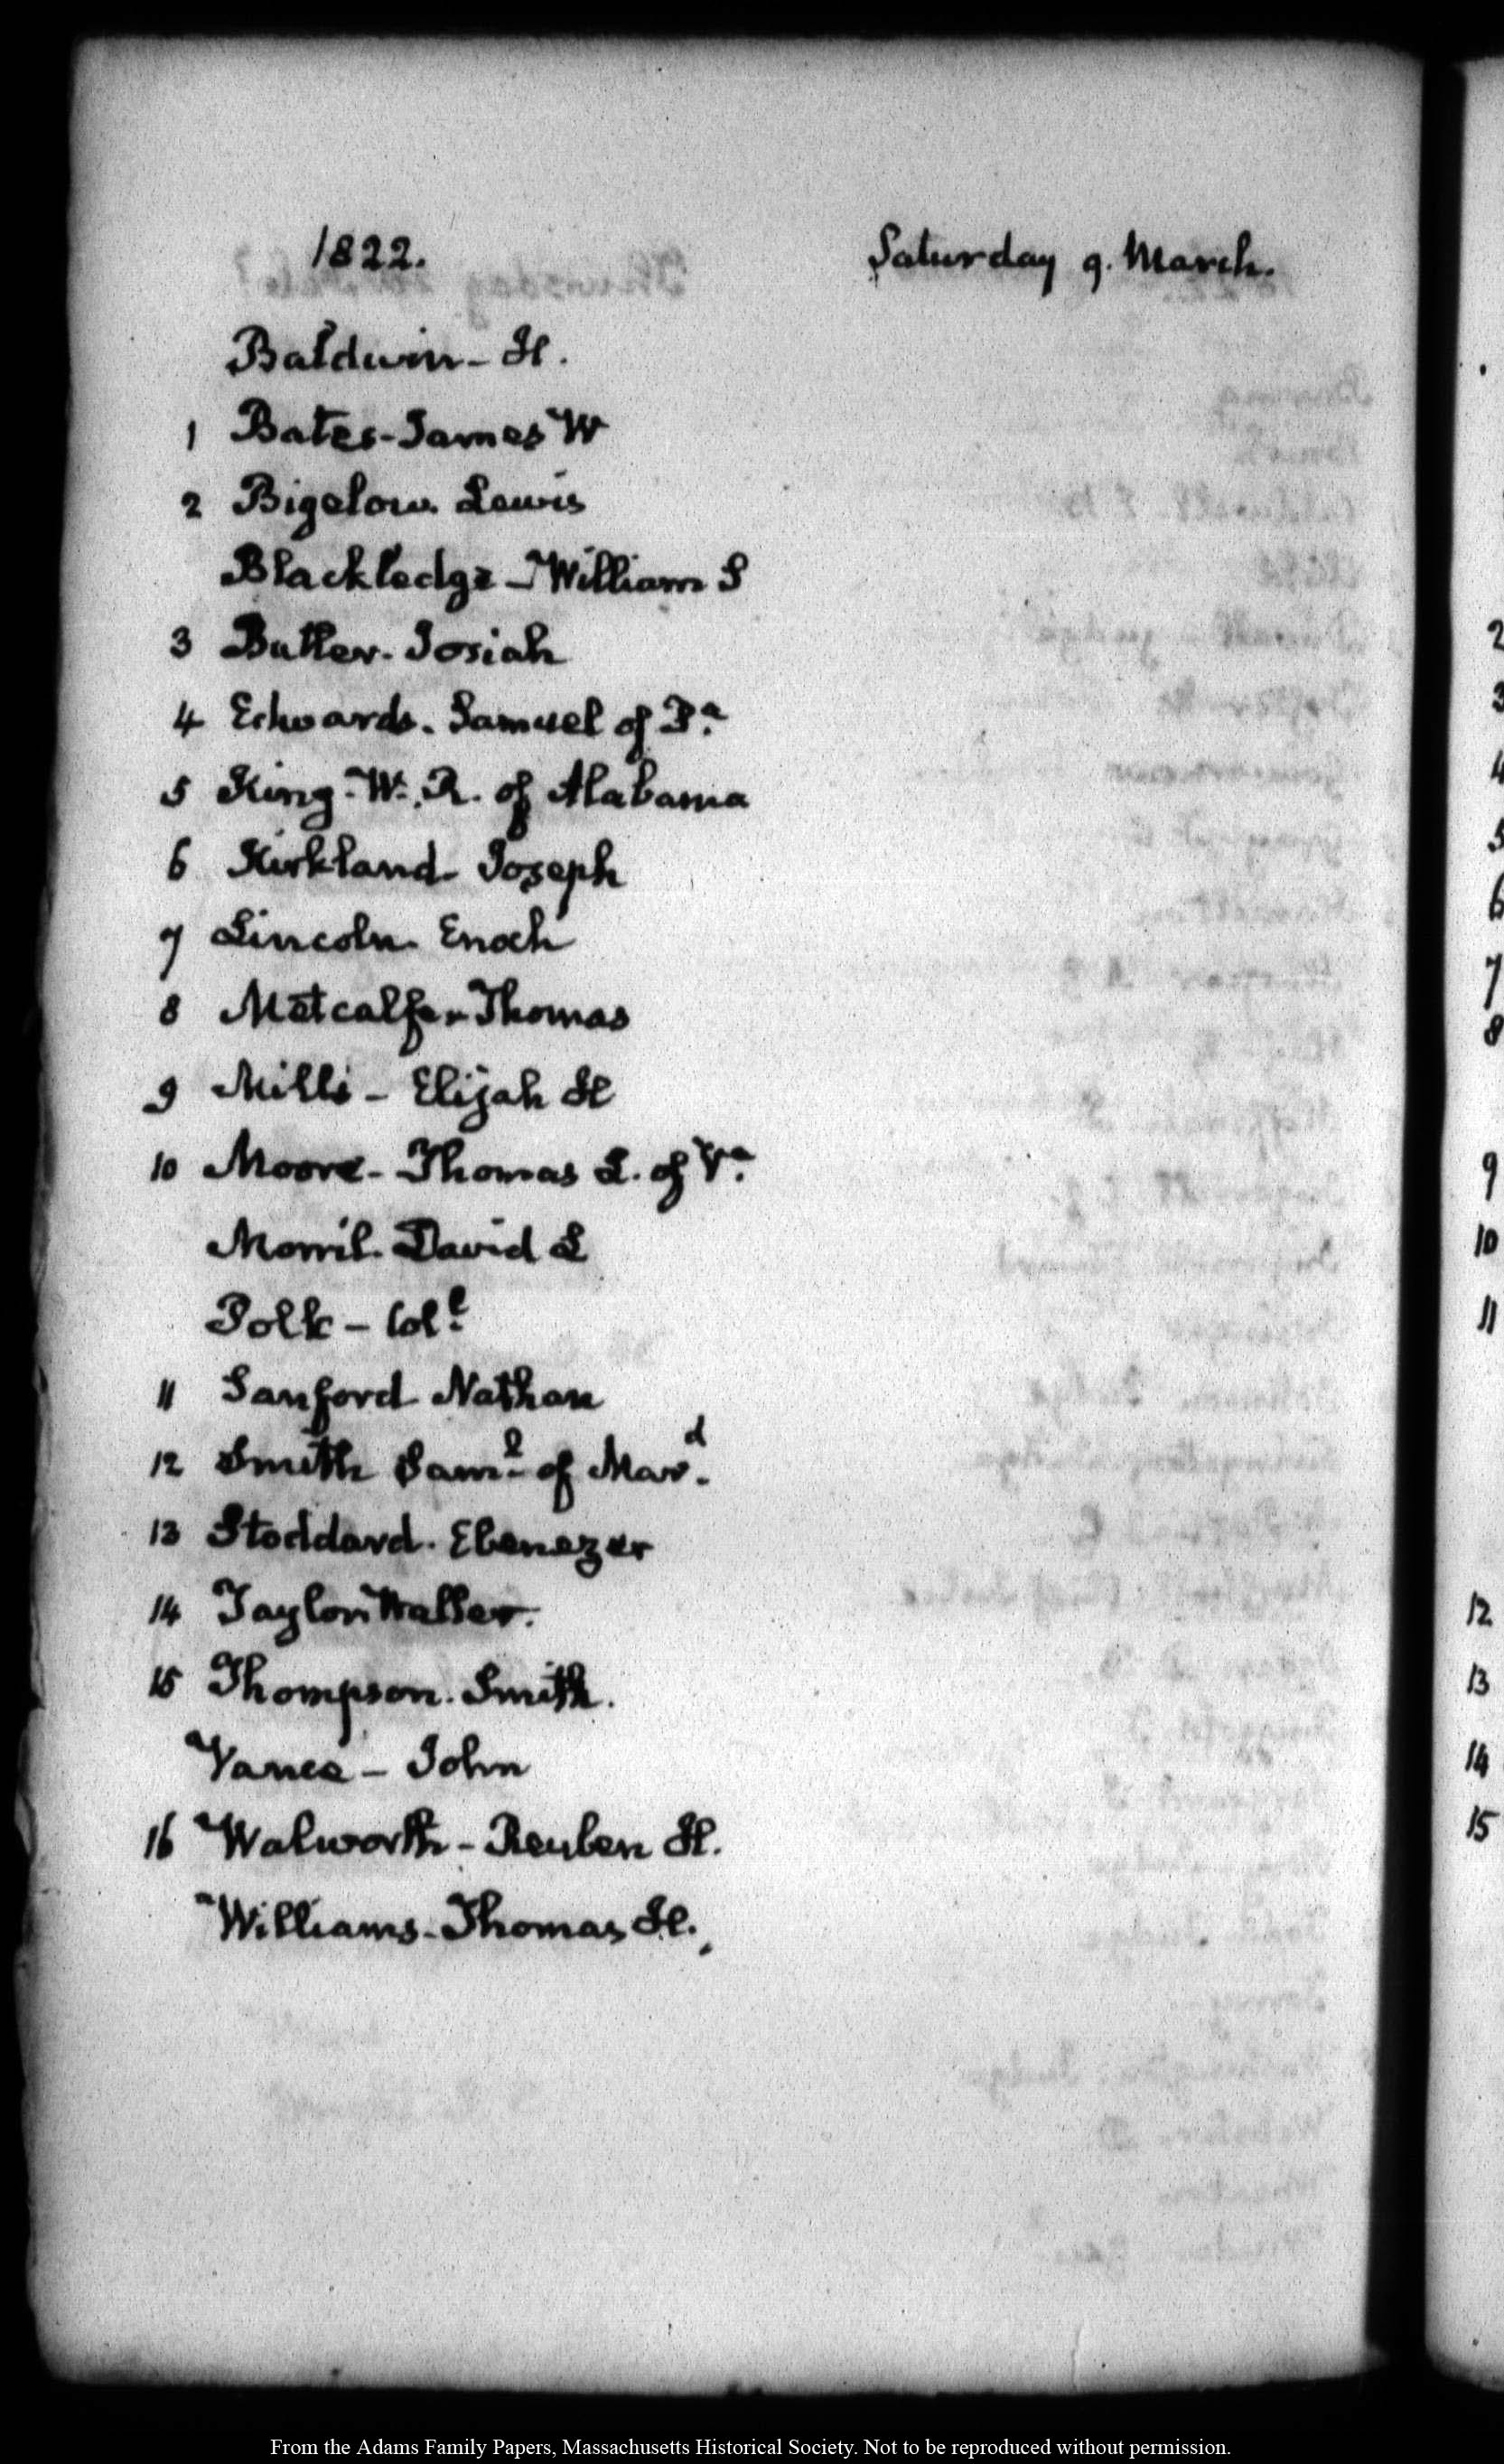 1822. Saturday 9. March.
Baldwin - H.
1 Bates - James W
2 Bigelow. Lewis
Blackledge - William S
3 Butler. Josiah
4 Edwards. Samuel of Pa.
5 King - W. R. of Alabama
6 Kirkland - Joseph
7 Lincoln. Enoch
8 Metcalfe - Thomas
9 Mills - Elijah H
10 Moore - Thomas L. of Va.
Morril. David L
Polk - Coll.
11 Sanford Nathan
12 Smith Saml. of Mard.
13 Stoddard. Ebenezer
14 Taylor Waller.
15 Thompson. Smith.
Vance - John
16 Walworth - Reuben H.
Williams - Thomas H.
2
3
4
5
6
7
8
9
10
11
12
13
14
15
From the Adams Family Papers, Massachusetts Historical Society. Not to be reproduced without permission.